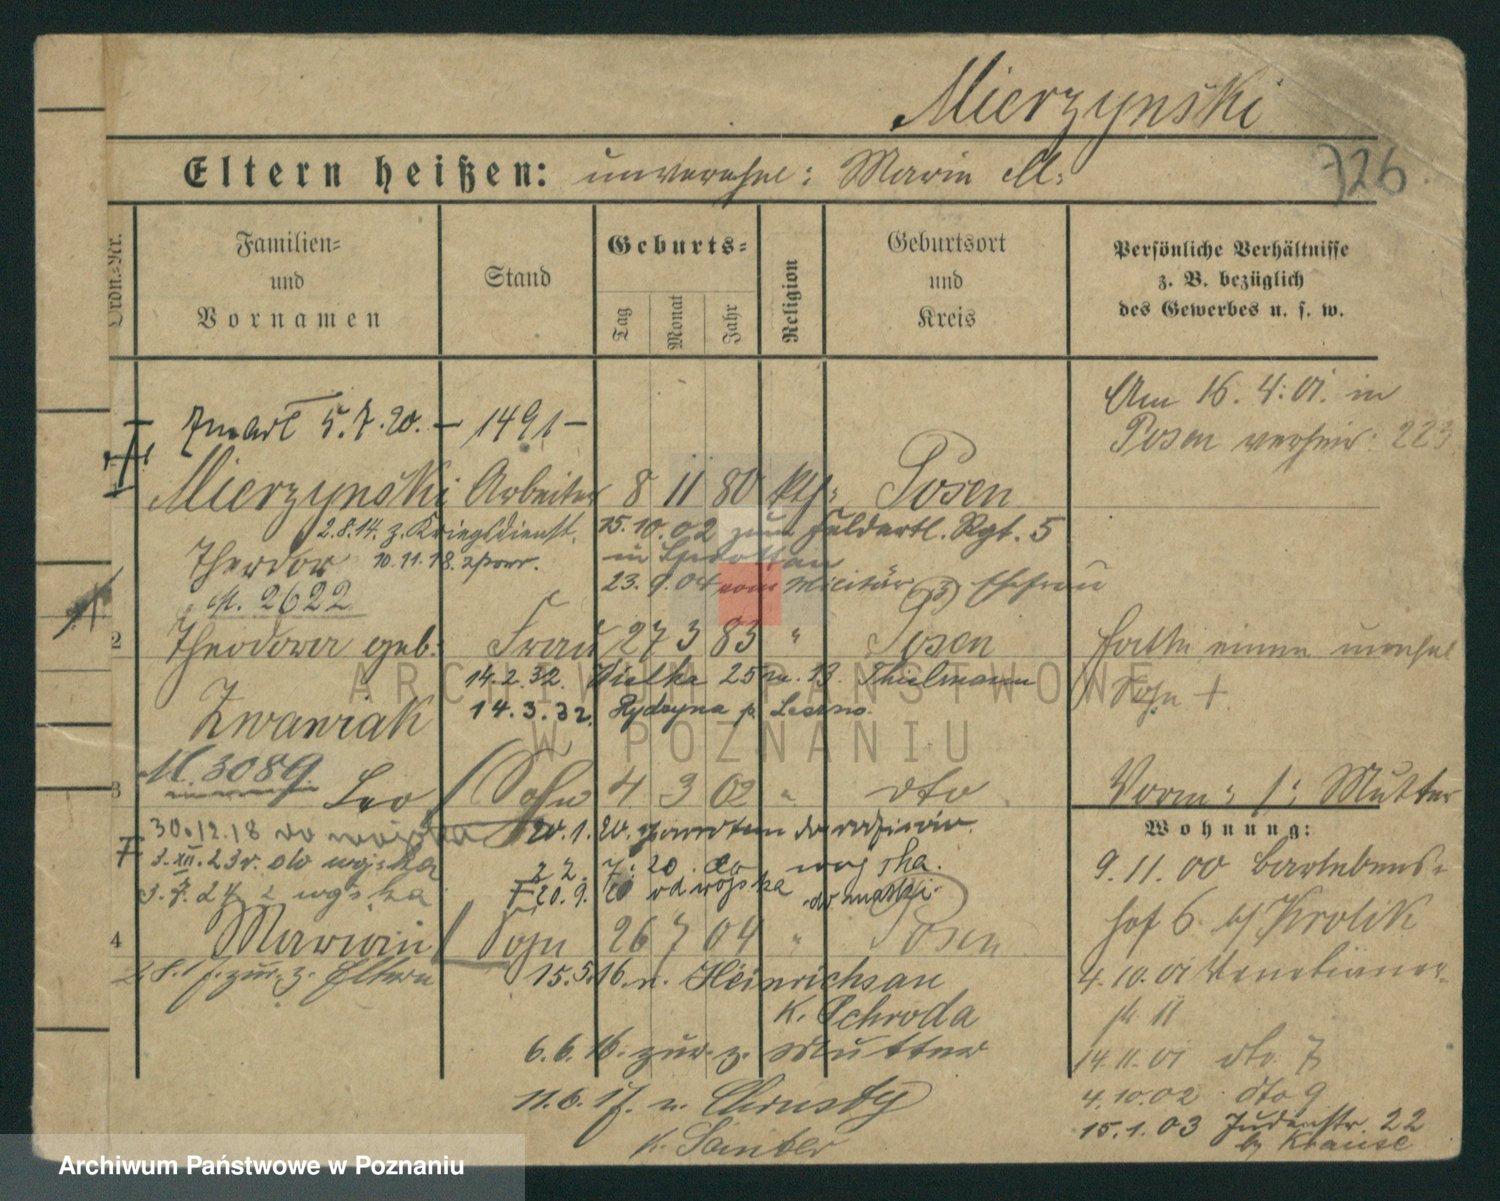 Mierzynski
Eltern heißen: unverehel: Marie M:
726
Ordn.=Nr.
Familien=
und
Vornamen
Stand
Geburts=
Tag
Monat
Jahr
Religion
Geburtsort
und
Kreis
Persönliche Verhältnisse
z. B. bezüglich
des Gewerbes u. s. w.
Zmarł 5.7.20. — 1491 —
Am 16.4.01. in
Posen verheir: 223
Mierzynski Arbeiter 8 11 80 kth: Posen
2.8.14. z. Kriegsdienst. 15.10.02 zum Feldartl. Rgt. 5
Theodor 10.11.18. zpowr. in Sprottau
23.9.04 vom Militär z. Ehefrau
M. 2622
2 Theodora geb: Frau 27 3 83 " Posen
hatte einen unehel
Sohn +
14.2.32. 25 m. 13 Thielmann
Zwawiak 14.3.32. Rydzyna p. Leszno.
M 3089
3 Leo Sohn 4 3 02 " dto
Vorm: /: Mutter
30.12.18 do wojska 20.1.20. do
3.XII.23r. do wojska 22.7.20 do wojska.
3.7.24 z wojska 20.9.20 od wojska do matki.
4 Marian Sohn 26 7 04 " Posen
zur. z. Eltern 15.5.16. n. Heinrichsau
K. Schroda
6.6.16. zur. z. Mutter
11.6.17. n.
K. Samter
Wohnung:
9.11.00 Bartebens=
hof 6 b/ Krolik
4.10.01 Venetianer
11
14.11.01 dto. 7
4.10.02 dto 9
15.1.03 Judenstr. 22
by Krause
ARCHIWUM PAŃSTWOWE
W POZNANIU
Archiwum Państwowe w Poznaniu